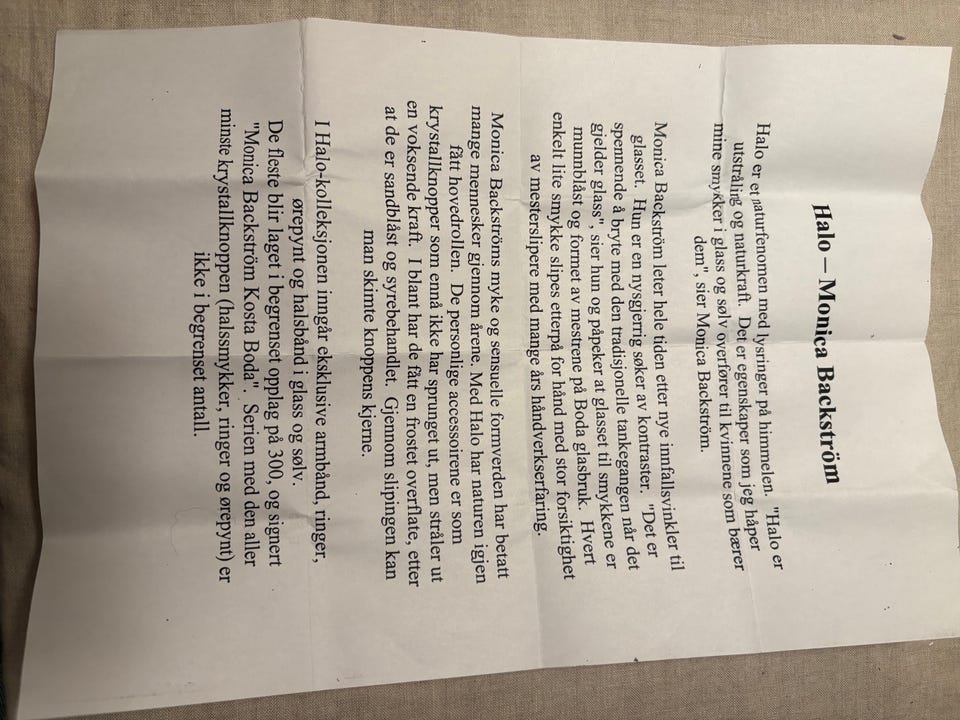 Halo – Monica Backström
Halo er et naturfenomen med lysninger på himmelen. "Halo er
utstråling og naturkraft. Det er egenskaper som jeg håper
mine smykker i glass og sølv overfører til kvinnene som bærer
dem", sier Monica Backström.
Monica Backström leter hele tiden etter nye innfallsvinkler til
glasset. Hun er en nysgjerrig søker av kontraster. "Det er
spennende å bryte med den tradisjonelle tankegangen når det
gjelder glass", sier hun og påpeker at glasset til smykkene er
munnblåst og formet av mestrene på Boda glasbruk. Hvert
enkelt lite smykke slipes etterpå for hånd med stor forsiktighet
av mesterslipere med mange års håndverkserfaring.
Monica Backströms myke og sensuelle formverden har betatt
mange mennesker gjennom årene. Med Halo har naturen igjen
fått hovedrollen. De personlige accessoirene er som
krystallknopper som ennå ikke har sprunget ut, men stråler ut
en voksende kraft. I blant har de fått en frostet overflate, etter
at de er sandblåst og syrebehandlet. Gjennom slipingen kan
man skimte knoppens kjerne.
I Halo-kolleksjonen inngår eksklusive armbånd, ringer,
ørepynt og halsbånd i glass og sølv.
De fleste blir laget i begrenset opplag på 300, og signert
"Monica Backström Kosta Boda". Serien med den aller
minste krystallknoppen (halssmykker, ringer og ørepynt) er
ikke i begrenset antall.